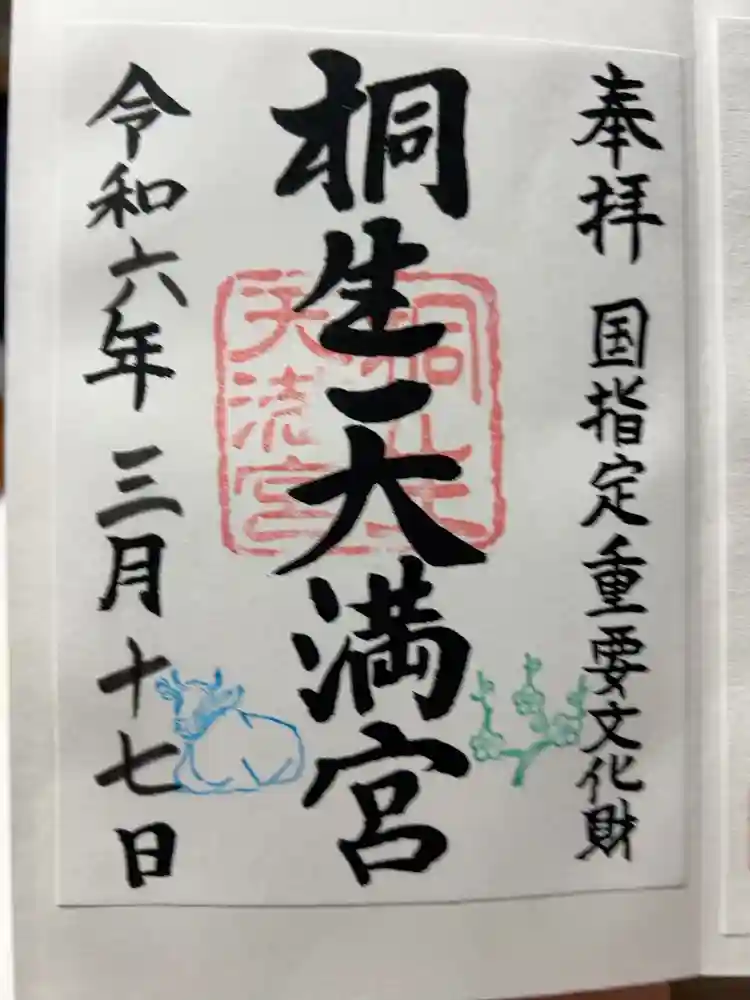 奉拝 国指定重要文化財
桐生天満宮
桐生
天満宮
令和六年三月十七日